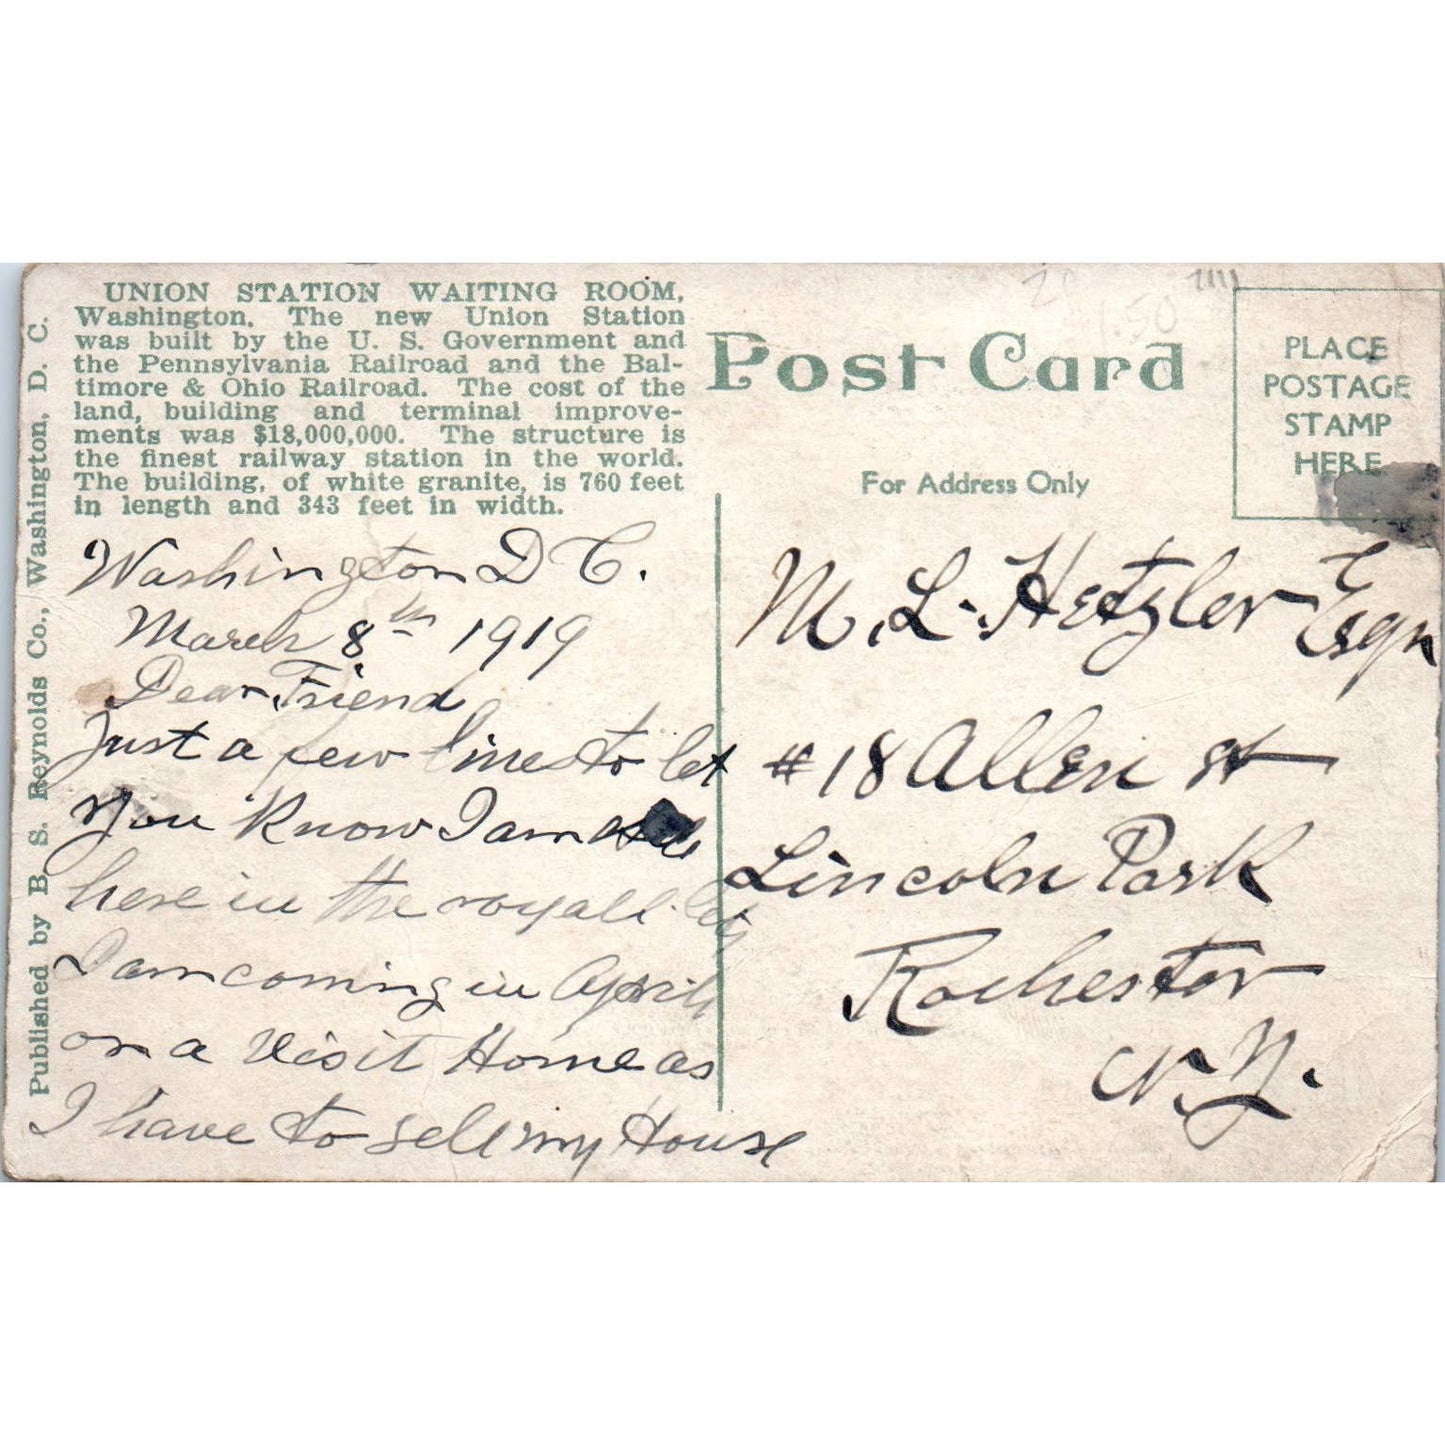 UNION STATION WAITING ROOM,
Washington. The new Union Station
was built by the U. S. Government and
the Pennsylvania Railroad and the Bal-
timore & Ohio Railroad. The cost of the
land, building and terminal improve-
ments was $18,000,000. The structure is
the finest railway station in the world.
The building, of white granite, is 760 feet
in length and 343 feet in width.
Published by B. S. Reynolds Co., Washington, D. C.
Washington D C.
March 8th 1919
Dear Friend
Just a few lines to let
you Know I am
here in the royall City
I am coming in April
on a Visit Home as
I have to sell my House
Post Card
For Address Only
PLACE
POSTAGE
STAMP
HERE
1.50
M. L. Hetzler Esqr
#18 Allen st
Lincoln Park
Rochester
N. Y.